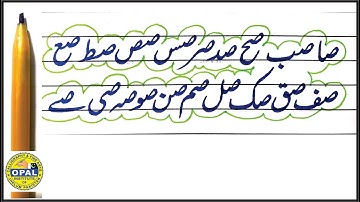 صا صب صح صد صر صس صص صط صع
صف صق صک صل صم صن صو صہ صی صے
OPAL